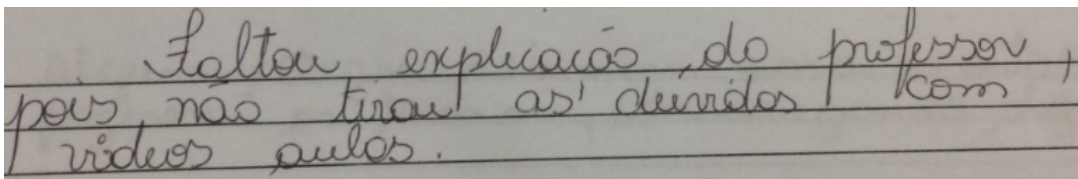 Faltou explicação do professor,
pois não tirou as duvidas com
videos aulas.